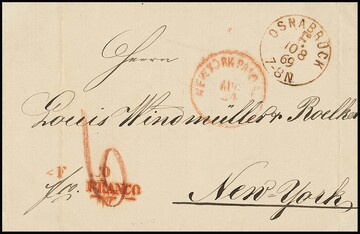 OSNABRÜCK
10 8
69
7-8N
Herrn
NEW YORK PAID ALL
AUG
24
Louis Windmüller & Roelker
FRANCO
New-York